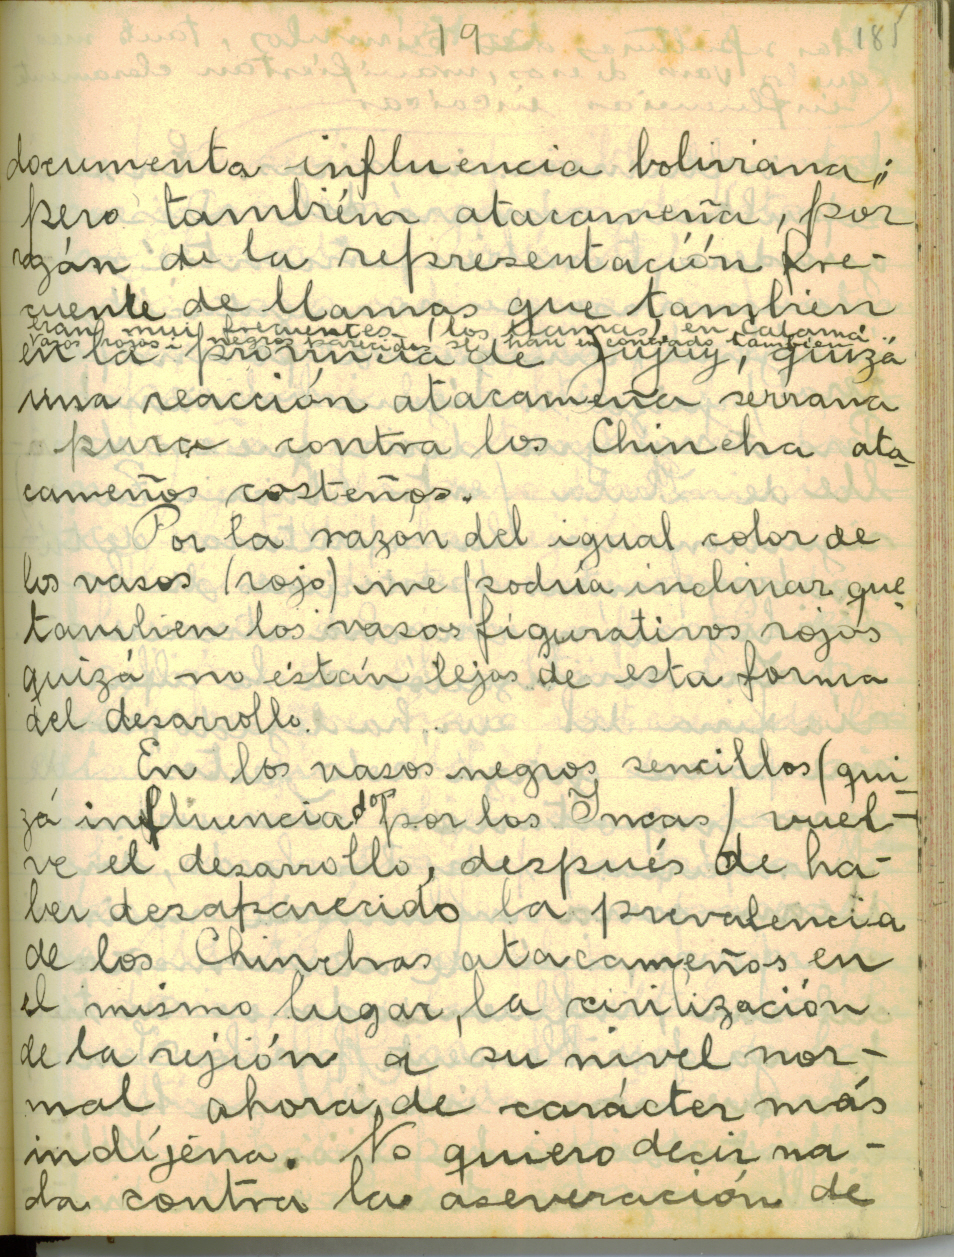 19
185
documenta influencia boliviana;
pero también atacameña, por
razón de la representación fre-
cuente de llamas que tambien
eran mui frecuentes (los llamas) en Calama
vasos rojos i negros parecidos se han encontrado tambien
en la provincia de Jujuy, quizá
una reacción atacameña serrana
pura contra los Chincha ata-
cameños costeños.
Por la razón del igual color de
los vasos (rojo) me podría inclinar que
tambien los vasos figurativos rojos
quizá no están lejos de esta forma
del desarrollo.
En los vasos negros sencillos (qui-
zá influenciados por los Incas) vuel-
ve el desarrollo, después de ha-
ber desaparecido la prevalencia
de los Chinchas atacameños en
el mismo lugar, la civilización
de la rejión a su nivel nor-
mal ahora de carácter más
indíjena. No quiero decir na-
da contra la aseveración de